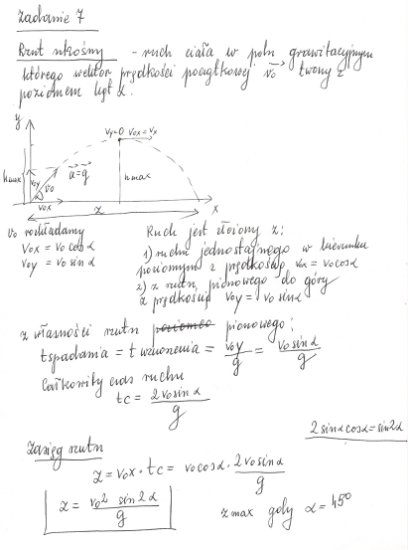 Zadanie 7
Rzut ukośny - ruch ciała w polu grawitacyjnym
którego wektor prędkości początkowej v₀ tworzy z
poziomem kąt α.
y
vy=0 vox=vx
hmax
voy
v₀
α
a=g
hmax
z
x
v₀ rozkładamy
vox = v₀ cos α
voy = v₀ sin α
Ruch jest złożony z:
1) ruchu jednostajnego w kierunku
poziomym z prędkością vx = v₀cosα
2) z rzutu pionowego do góry
z prędkością voy = v₀ sinα
z własności rzutu poziomeo pionowego:
tspadania = t wznoszenia = voy/g = v₀sinα/g
Całkowity czas ruchu
tc = 2v₀sinα/g
2sinαcosα=sin2α
Zasięg rzutu
z = vox · tc = v₀cosα · 2v₀sinα/g
z = v₀² sin2α/g
z max gdy α = 45°